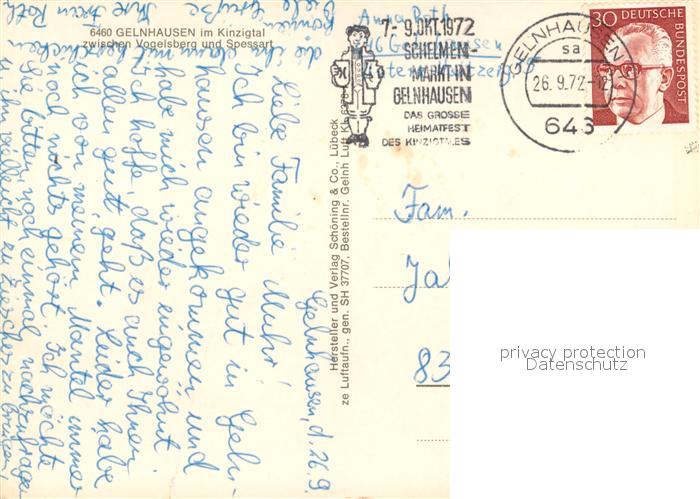 6460 GELNHAUSEN im Kinzigtal
zwischen Vogelsberg und Spessart
Gelnhausen, d. 26.9.
Liebe Familie Muhr!
Ich bin wieder gut in Geln-
hausen angekommen und
habe mich wieder eingewöhnt
Ich hoffe, daß es auch Ihnen
allen gut geht. Leider habe
ich von meinem Mantel immer
noch nichts gehört. Ich möchte
Sie bitten noch einmal nachzufragen
u. ihn vielleicht zu
Viele Grüße
Ihre Frau Roth
Hersteller und Verlag Schöning & Co., Lübeck
ze Luftaufn., gen. SH 37707, Bestellnr. Gelnh Luft K
Anna Roth
646 Gelnhausen
7.- 9.OKT.1972
SCHELMEN-
MARKT IN
GELNHAUSEN
DAS GROSSE
HEIMATFEST
DES KINZIGTALES
GELNHAUSEN
sa
26.9.72-12
646
30 DEUTSCHE
BUNDESPOST
Fam.
Ja
83
privacy protection
Datenschutz